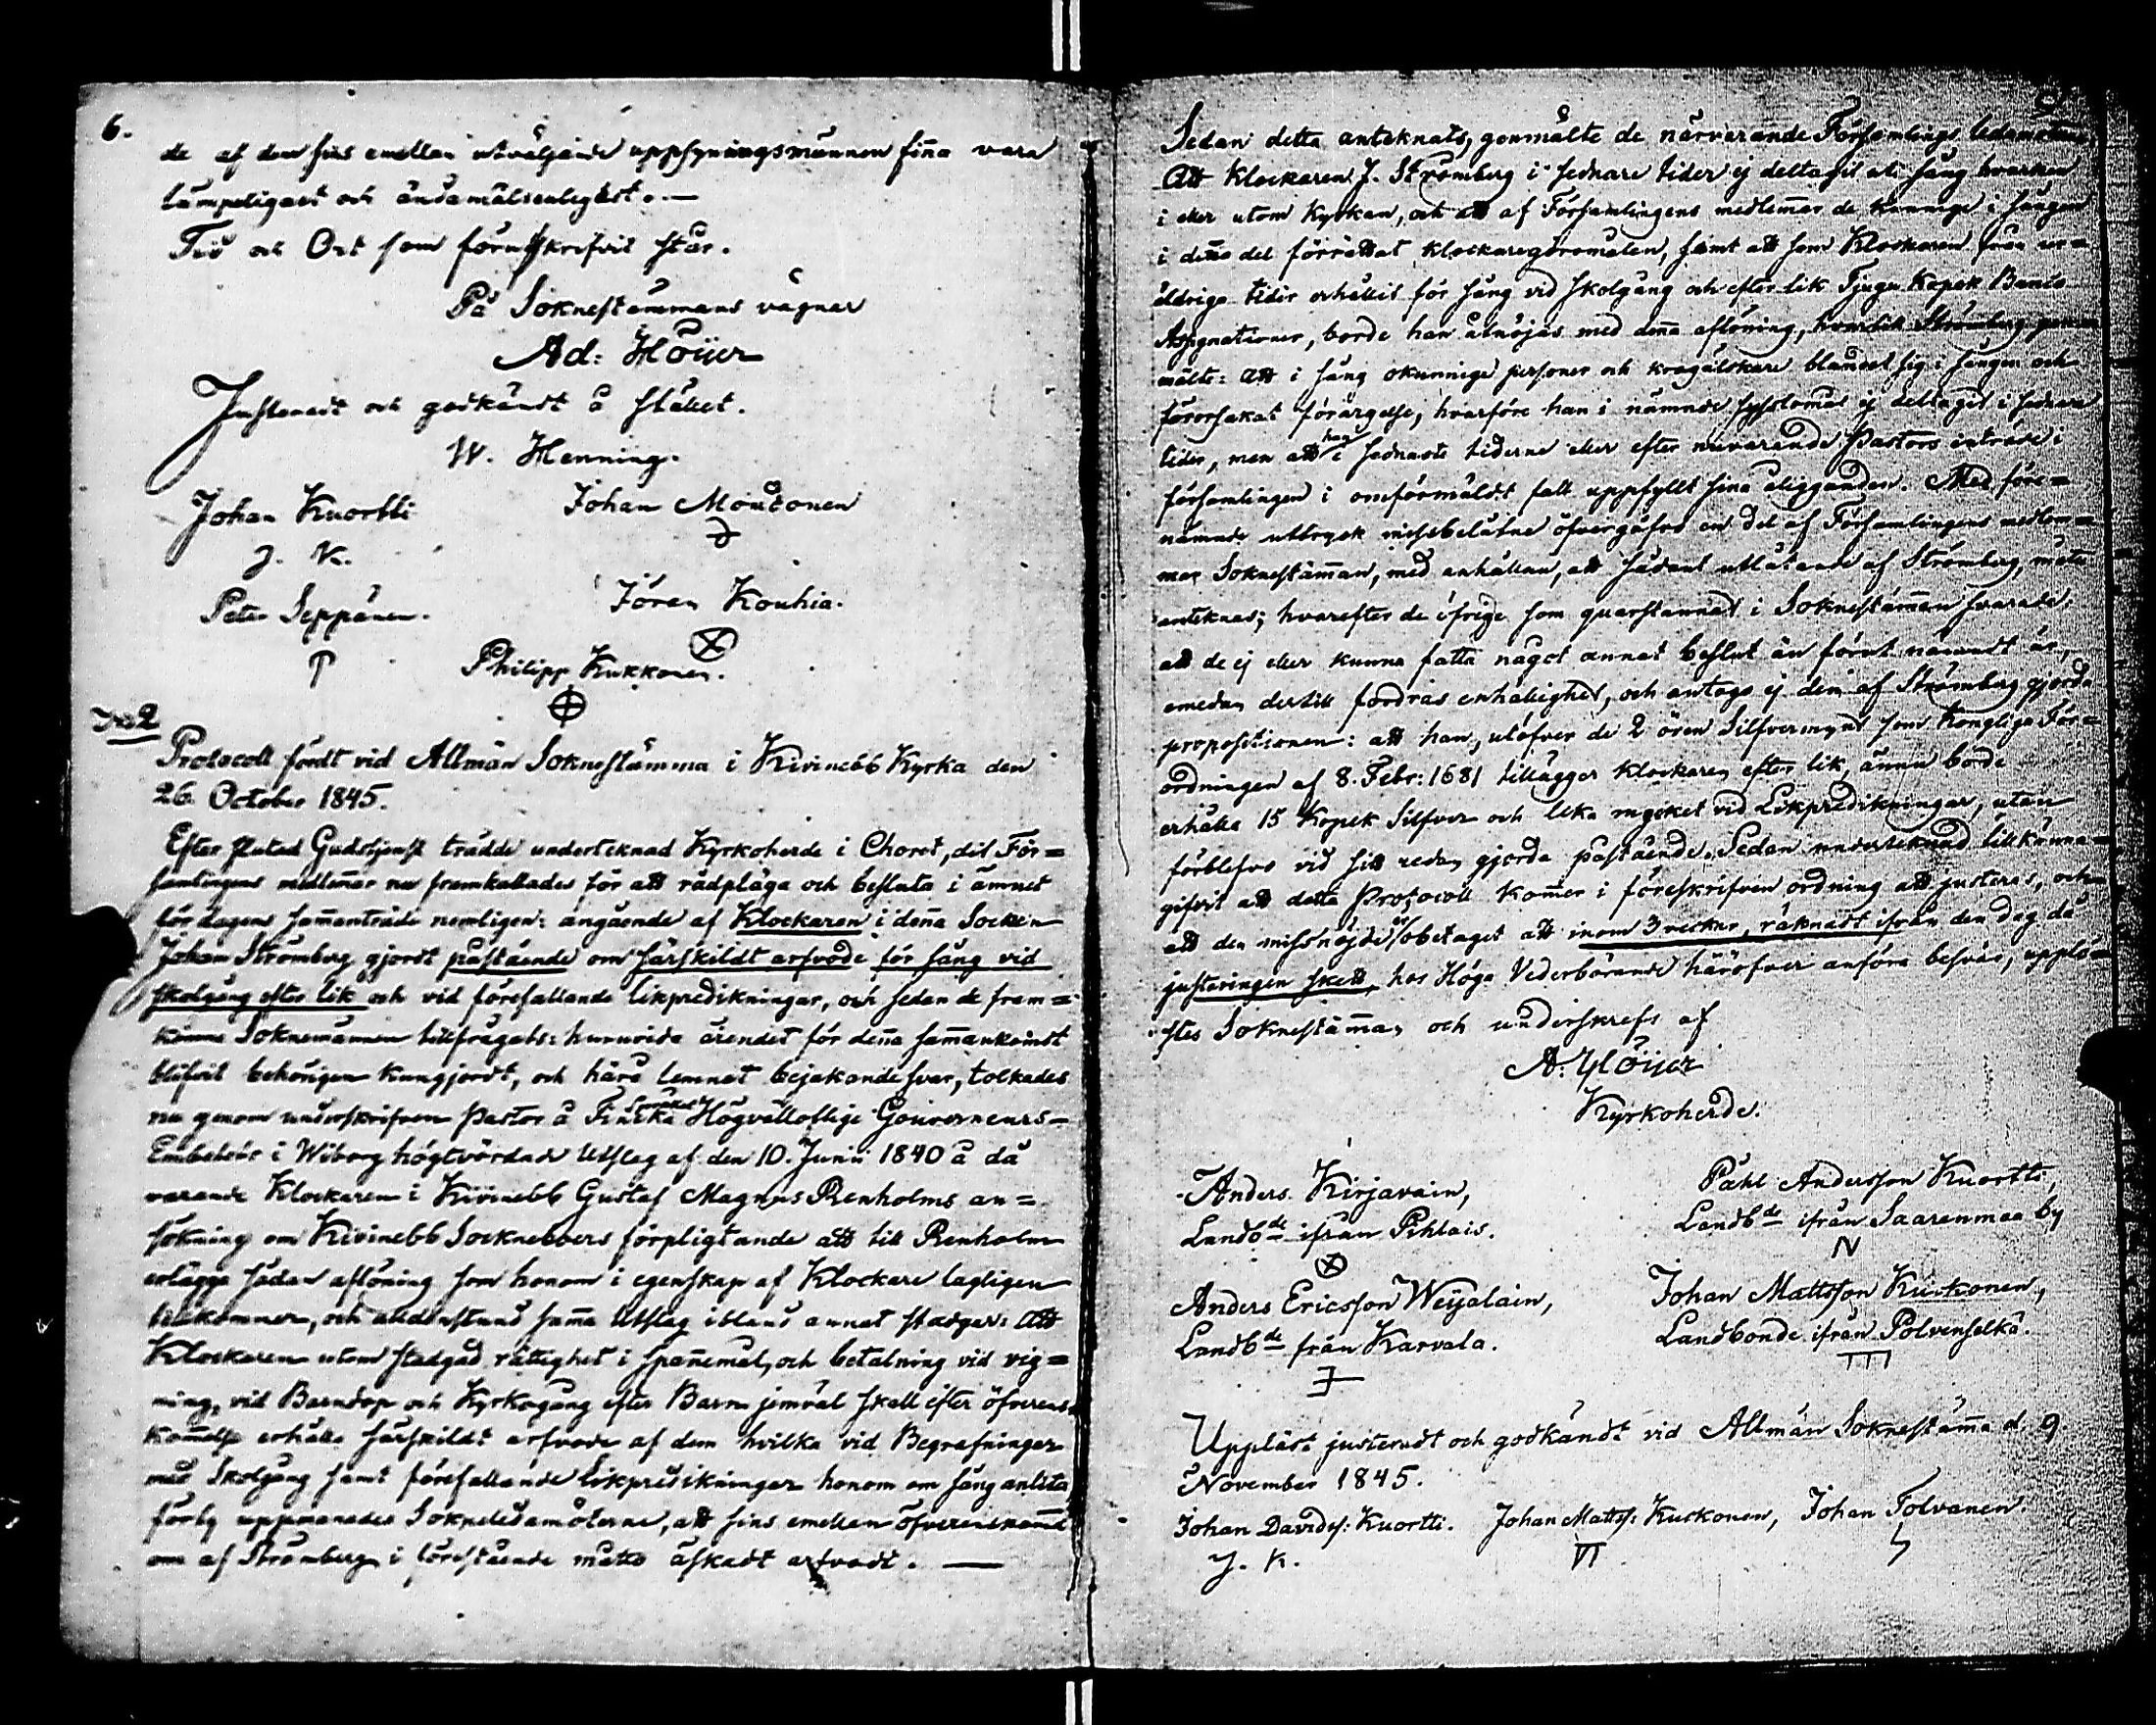 6.
de af dem sins emellan utväljande uppsyningsmännen fin̄a vara
lämpeligast och ändamålsenligast. —
Tid och Ort som förut skrifvit står.
På Soknestämmans vägnar
Ad: Höijer
Justeradt och godkändt å stället.
W. Henning.
Johan Kuortti Johan Moutonen
J. K.
Peter Seppänen. Jören Kouhia.
Philipp Kukkonen.
No 2
Protocoll fördt vid Allmän Soknestämma i Kivinebb Kyrka den
26. October 1845.
Efter slutad Gudstjenst trädde undertecknad Kyrkoherde i Choret, dit För=
samlingens medlem̄ar nu framkallades för att rådpläga och besluta i ämnet
för dagens sam̄anträde nemligen: angående af Klockaren i den̄a Socken
Johan Strömberg gjordt påstående om särskildt arfvode för sång vid
skolgång efter lik och vid förefallande likpredikningar, och sedan de fram=
komne Soknemännen tillfrågats: huruvida ärendet för den̄a sam̄ankomst
blifvit behörigen kungjordt, och härå lemnat bejakande svar, tolkades
nu genom underskrifven Pastor å Finska språket Högvälloflige Gouverneurs-
Embetets i Wiborg högtvördade Utslag af den 10. Junii 1840 å då
varande Klockaren i Kivinebb Gustaf Magnus Renholms an=
sökning om Kivinebb Socknebors förpligtande att till Renholm
erlägga sådan aflöning som honom i egenskap af Klockare lagligen
tillkommer, och alldenstund sam̄a Utslag ibland annat stadgar: Att
Klockaren utom stadgad rättighet i span̄emål, och betalning vid vig=
ning, vid Barndop och Kyrkogång efter Barn jemväl skall efter öfverens
kom̄else erhålla särskildt arfvode af dem hvilka vid Begrafningar
med Skolgång samt förefallande Likpredikningar honom om sång anlita
förty uppmanades Sokneledamöterne, att sins emellan öfverenskom̄a
om af Strömberg i förestående måtto äskadt arfvodt. —
Sedan detta anteknats, genmälte de närvarande Församlings ledamöterne
Att Klockaren J. Strömberg i sednare tider ej deltagit uti sång hvarken
i eller utom Kyrkan, och att af Församlingens medlem̄ar de kunnige i sången
i den̄a del förrättat klockaregöromålen, samt att som Klockaren från ur=
åldriga tider erhållit för sång vid skolgång och efter lik Tjugu Kopek Banco
Assignationer, borde han åtnöjas med den̄a aflöning, hvartill Strömberg genm
mälte: att i sång okunnige personer och kragälskare blandat sig i sången och
förorsakat förargelse, hvarföre han i nämnde sysslomål ej deltagit i sednare
tider, men att han i sednaste tiderne eller efter nuvarande Pastors inträde i
församlingen i omförmäldt fall uppfyllt sina åligganden. Med före=
nämnde uttryck missbelåtne öfvergåfvo en del af Församlingens medlem=
mar Soknestäm̄an, med anhållan, att sådant utlåtande af Strömberg måtte
anteknas; hvarefter de öfrige som quarstannat i Soknestäm̄an svarade:
att de ej eller kunna fatta något annat beslut än förut nämndt är,
emedan dertill fordras enhällighet, och antogo ej den af Strömberg gjorda
propositionen: att han, utöfver de 2 ören Silfvermynt som Kongliga För=
ordningen af 8. Febr: 1681 tillägger klockaren efter lik, ännu borde
erhålla 15 Kopek Silfver och lika mycket vid Likpredikningar, utan
förblefvo vid sitt redan gjorda påstående. Sedan undertecknad tillkänna=
gifvit att detta Protocoll kom̄er i föreskrifven ordning att justeras, och
att den missnöjde är obetaget att inom 3 veckor, räknadt ifrån den dag då
justeringen skett, hos Höga Vederbörande häröfver anföra besvär, upplö=
stes Soknestäm̄an och underskrefs af
A. Höijer
Kyrkoherde.
Anders Kirjavain, Påhl Andersson Kuortti,
Landbde ifrån Pihlais. Landbde ifrån Saarenmaa by
Anders Ericsson Weijalain, Johan Mattsson Kuckonen,
Landbde från Karvala. Landbonde ifrån Polvenselkä.
Uppläst justeradt och godkändt vid Allmän Soknestäm̄a d. 9.
November 1845.
Johan Davidss: Kuortti. Johan Mattss: Kuckonen, Johan Tolvanen
J. K.